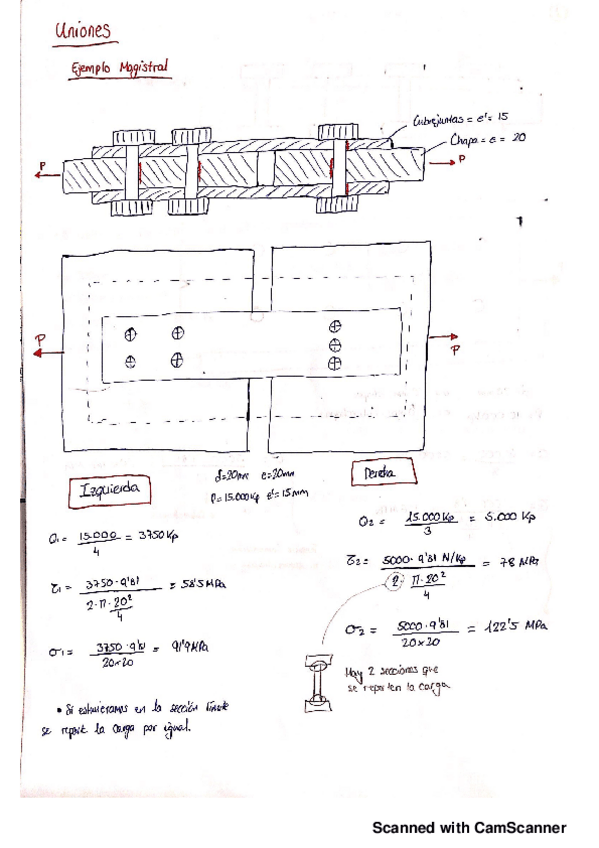 Uniones
Ejemplo Magistral
Cubrejuntas = e' = 15
Chapa = e = 20
P
P
P
P
d=20mm e=20mm
P=15.000Kp e'=15mm
Izquierda
Q₁ = 15.000 / 4 = 3750 Kp
τ₁ = 3750·9'81 / 2·π·20²/4 = 58'5 MPa
σ₁ = 3750·9'81 / 20×20 = 91'9 MPa
• Si estuvieramos en la sección
se reparte la carga por igual.
Derecha
Q₂ = 15.000 Kp / 3 = 5.000 Kp
τ₂ = 5000·9'81 N/Kp / 2·π·20²/4 = 78 MPa
σ₂ = 5000·9'81 / 20×20 = 122'5 MPa
Hay 2 secciones que
se reparten la carga
Scanned with CamScanner